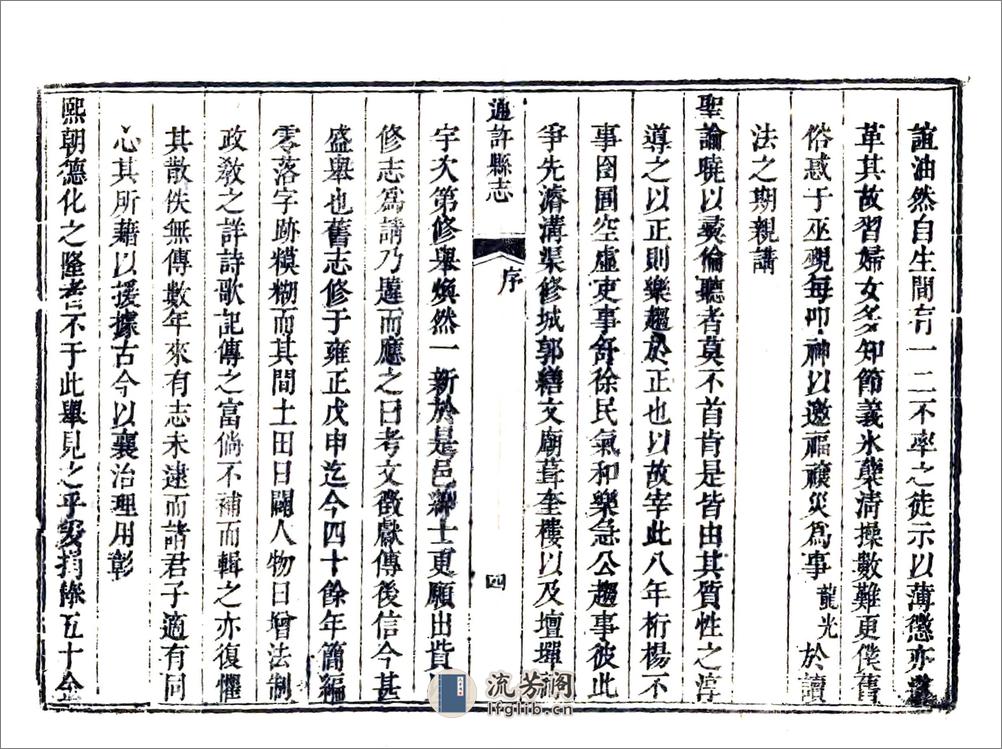 誼油然自生間有一二不率之徒示以薄懲亦
革其故習婦女多知節義氷蘗清操數難更僕舊
俗惑于巫覡每叩神以邀福禳災爲事龍光於讀
法之期親講
聖諭曉以彜倫聽者莫不首肯是皆由其質性之淳
導之以正則樂趨於正也以故宰此八年桁楊不
事囹圄空虛吏事舒徐民氣和樂急公趨事彼此
爭先濬溝渠修城郭繕文廟葺奎樓以及壇墠
通許縣志
序
四
宇次第修舉煥然一新於是邑紳士更願出貲
修志爲請乃韙而應之曰考文徵獻傳後信今甚
盛舉也舊志修于雍正戊申迄今四十餘年簡編
零落字跡糢糊而其間土田日闢人物日增法制
政敎之詳詩歌記傳之富倘不補而輯之亦復懼
其散佚無傳數年來有志未逮而諸君子適有同
心其所藉以援據古今以襄治理用彰
熙朝德化之隆者不于此舉見之乎爰捐俸五十金
流芳閣
lfglib.cn